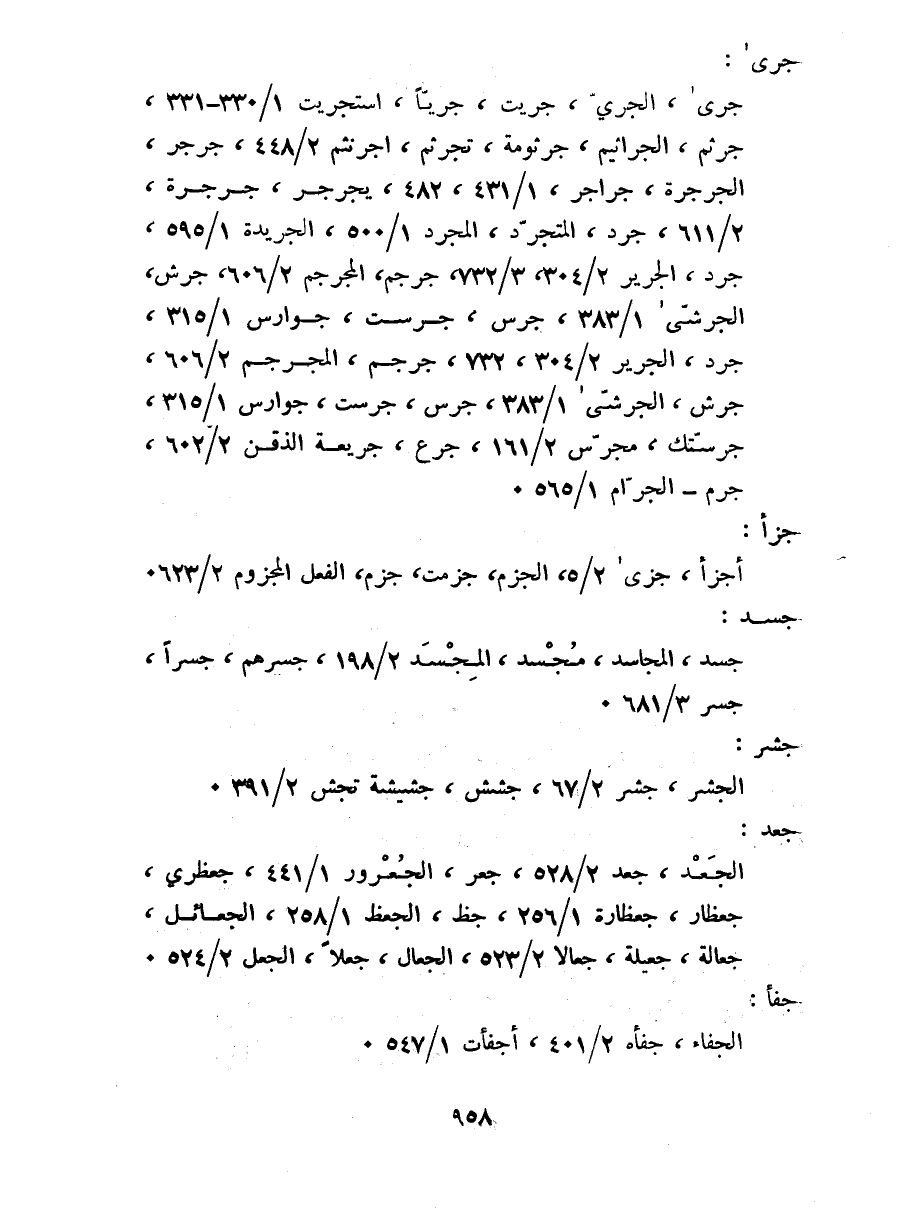 جرىٰ :
جرىٰ ، الجريّ ، جريت ، جريّاً ، استجريت ٣٣٠/١-٣٣١ ،
جرثم ، الجراثيم ، جرثومة ، تجرثم ، اجرنثم ٤٤٨/٢ ، جرجر ،
الجرجرة ، جراجر ، ٤٣١/١ ، ٤٨٢ ، يجرجر ، جرجرة ،
٦١١/٢ ، جرد ، المتجرّد ، المجرد ٥٠٠/١ ، الجريدة ٥٩٥/١ ،
جرد ، الجرير ٣٠٤/٢، ٧٣٢/٣، جرجم، المجرجم ٦٠٦/٢، جرش،
الجرشّىٰ ٣٨٣/١ ، جرس ، جرست ، جوارس ٣١٥/١ ،
جرد ، الجرير ٣٠٤/٢ ، ٧٣٢ ، جرجم ، المجرجم ٦٠٦/٢ ،
جرش ، الجرشّىٰ ٣٨٣/١ ، جرس ، جرست ، جوارس ٣١٥/١ ،
جرستك ، مجرّس ١٦١/٢ ، جرع ، جريعة الذقن ٦٠٢/٢ ،
جرم – الجرّام ٥٦٥/١ ٠
جزأ :
أجزأ ، جزىٰ ٥/٢، الجزم، جزمت، جزم، الفعل المجزوم ٦٢٣/٢٠
جسد :
جسد ، المجاسد ، مُجْسد ، المِجْسَد ١٩٨/٢ ، جسرهم ، جسراً ،
جسر ٦٨١/٣ ٠
جشر :
الجشر ، جشر ٦٧/٢ ، جشش ، جشيشة تجش ٣٩١/٢ ٠
جعد :
الجَعْد ، جعد ٥٢٨/٢ ، جعر ، الجُعْرور ٤٤١/١ ، جعظري ،
جعظار ، جعظارة ٢٥٦/١ ، جظ ، الجعظ ٢٥٨/١ ، الجعائل ،
جعالة ، جعيلة ، جعالا ٥٢٣/٢ ، الجعال ، جعلاً ، الجعل ٥٢٤/٢ ٠
جفأ :
الجفاء ، جفأه ٤٠١/٢ ، أجفأت ٥٤٧/١ ٠
٩٥٨